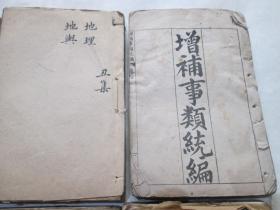 增補事類統編
地理
地輿
丑集